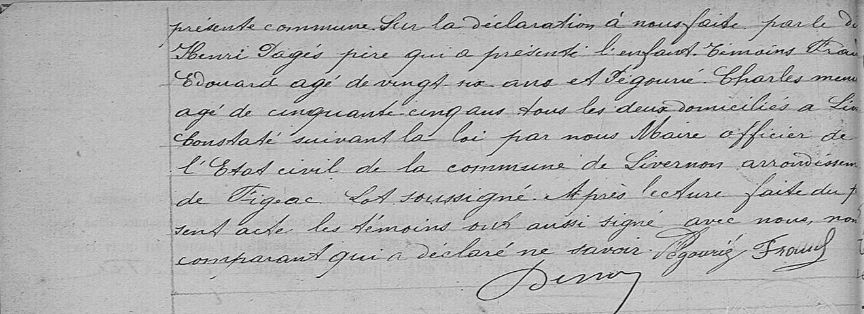 présente commune. Sur la déclaration à nous faite par le
Henri Pagés père qui a présenté l'enfant. Témoins
Edouard agé de vingt ans et Pégourié Charles
agé de cinquante cinq ans tous les deux domiciliés a Liv
Constaté suivant la loi par nous Maire officier de
l'Etat civil de la commune de Livernon arrondissem
de Figeac Lot soussigné. Après lecture faite du
sent acte les témoins ont aussi signé avec nous, non
comparant qui a déclaré ne savoir. Pégourié